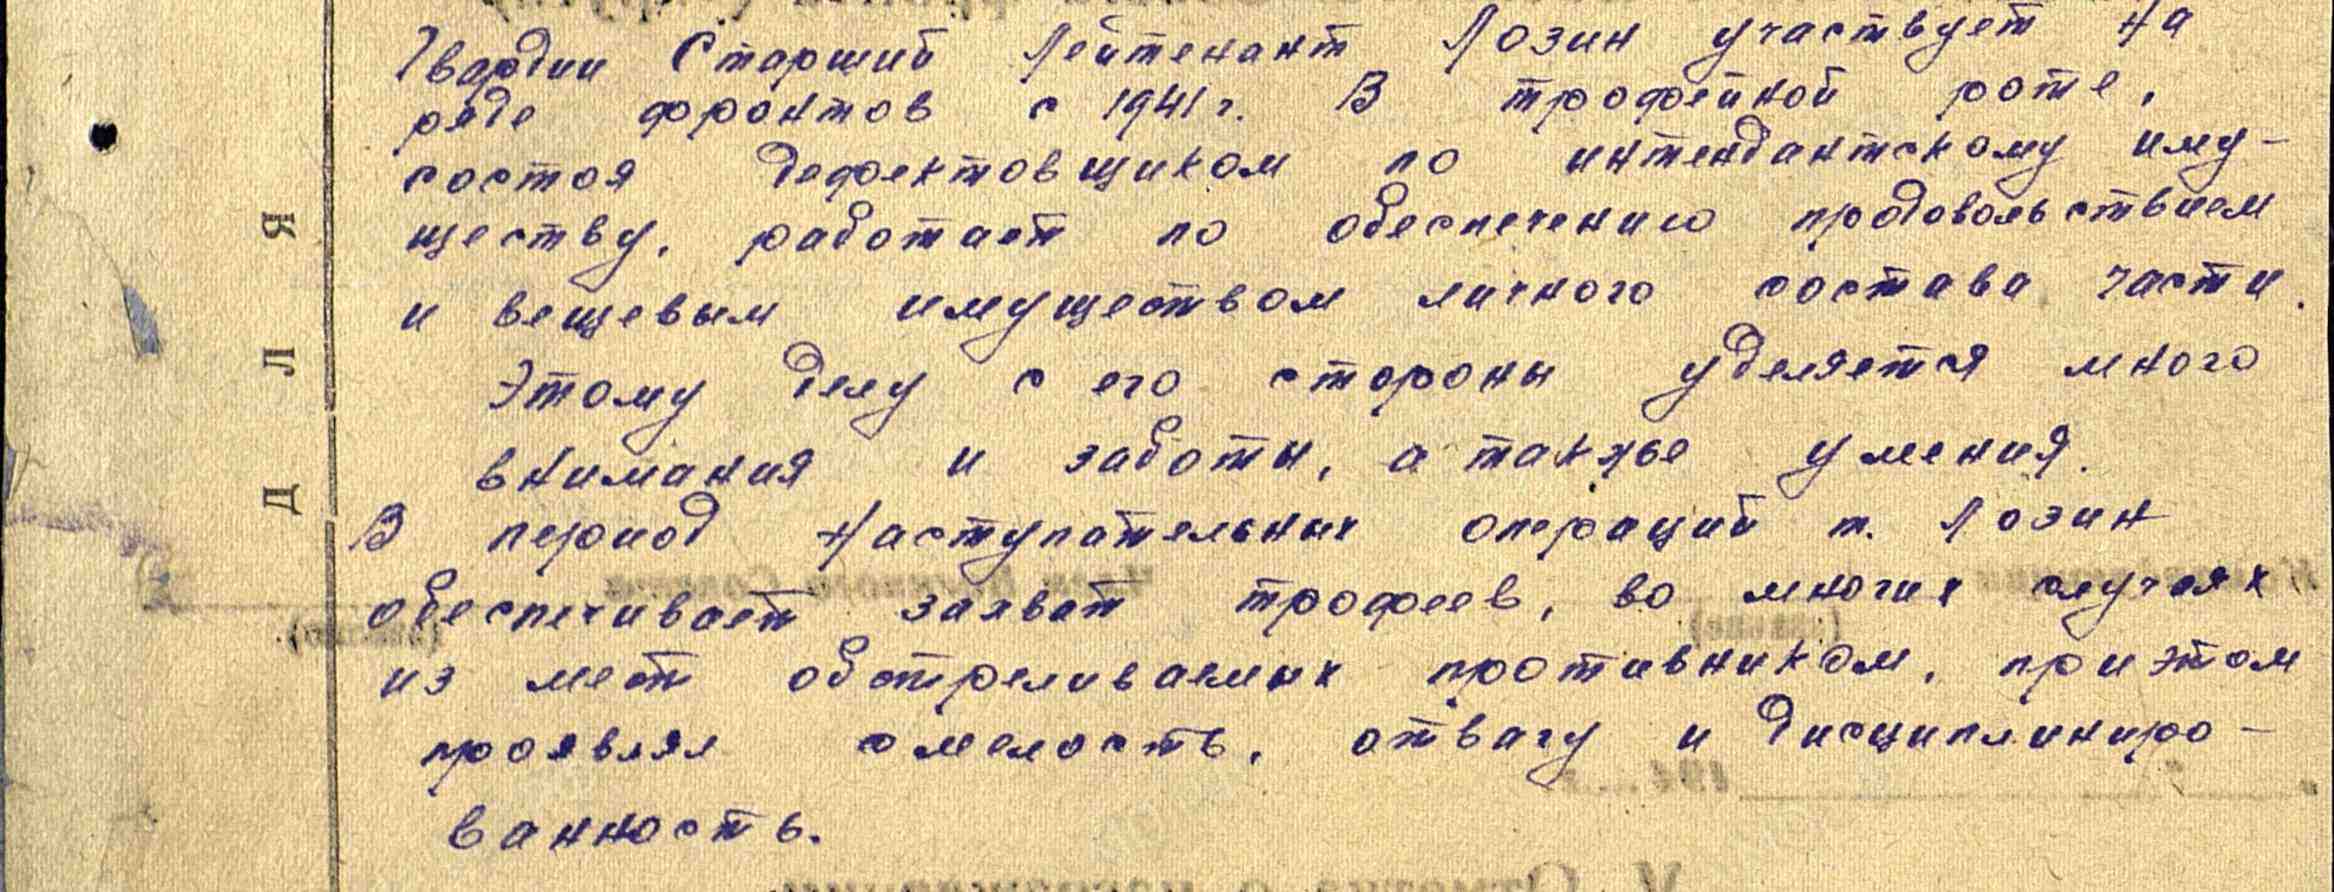 Гвардии Старший Лейтенант Лозин участвует на
ряде фронтов с 1941 г. В трофейной роте,
состоя дефектовщиком по интендантскому иму-
ществу, работает по обеспечению продовольствием
и вещевым имуществом личного состава части.
Этому делу с его стороны уделяется много
внимания и заботы, а также умения.
В период наступательных операций т. Лозин
обеспечивает захват трофеев, во многих случаях
из мест обстреливаемых противником, при этом
проявляя смелость, отвагу и дисциплиниро-
ванность.
ДЛЯ